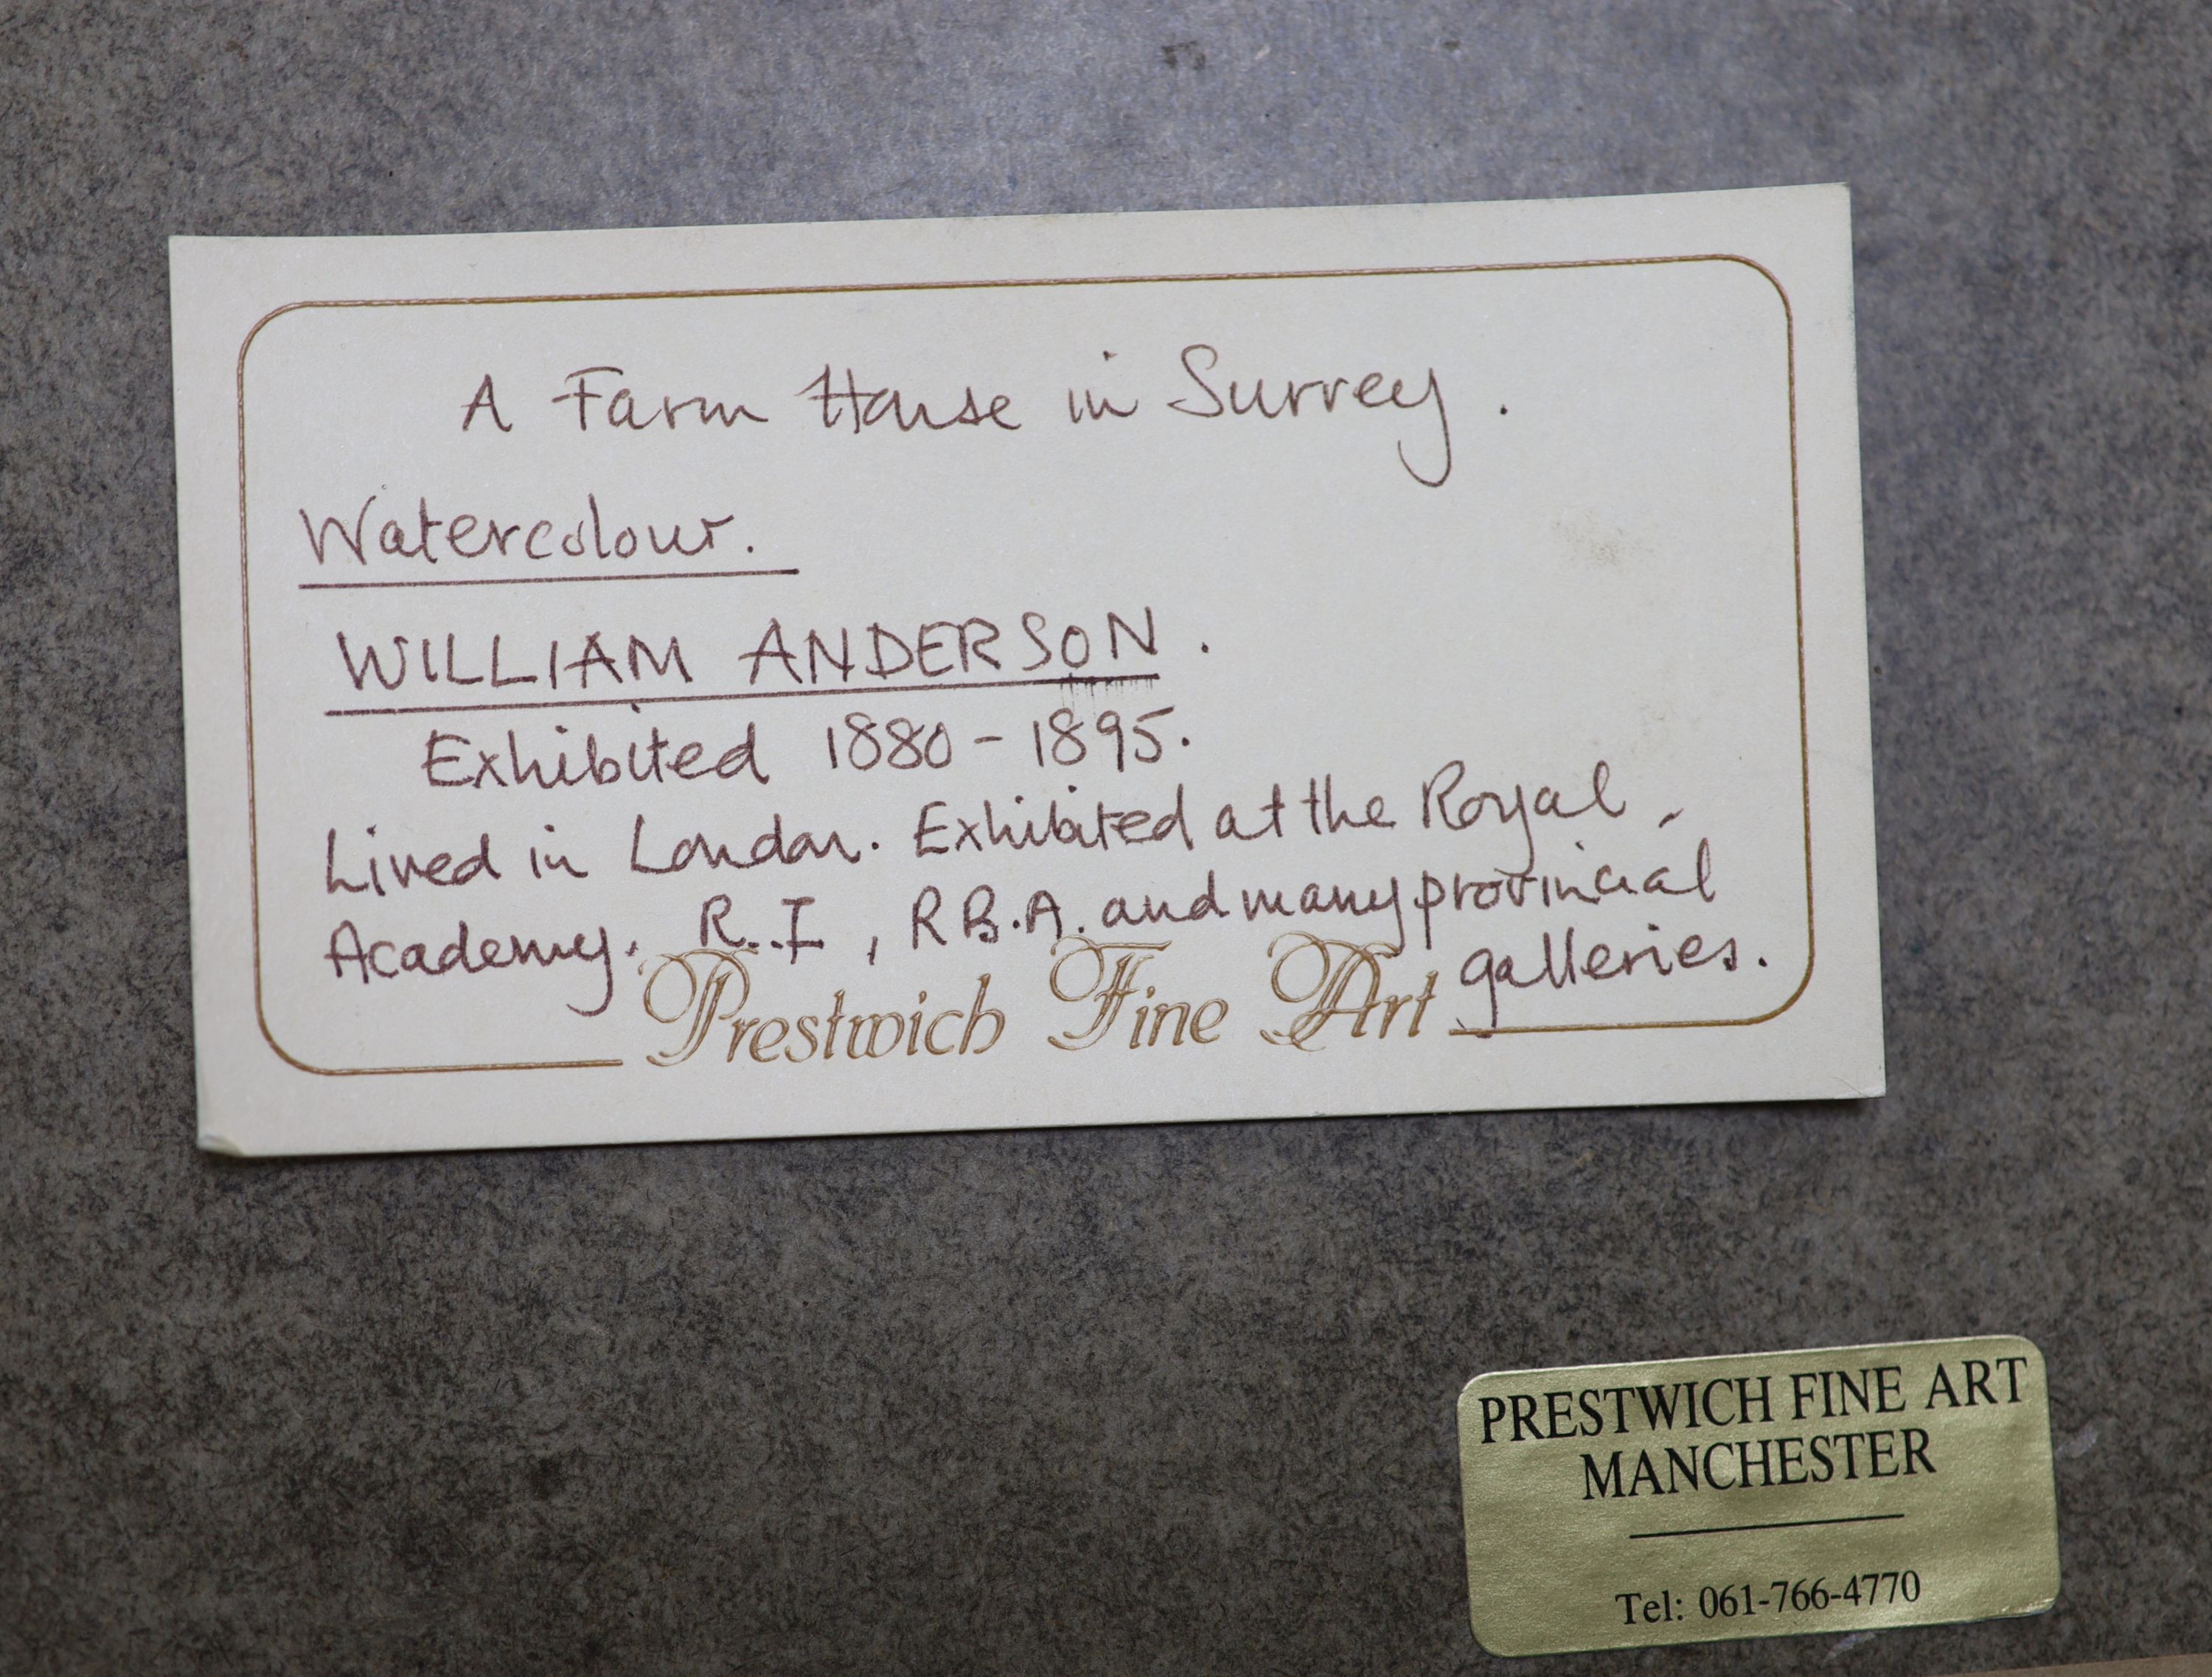 A Farm House in Surrey.
Watercolour.
WILLIAM ANDERSON.
Exhibited 1880-1895.
Lived in London. Exhibited at the Royal
Academy. R.I, R B.A. and many provincial
galleries.
Prestwich Fine Art
PRESTWICH FINE ART
MANCHESTER
Tel: 061-766-4770